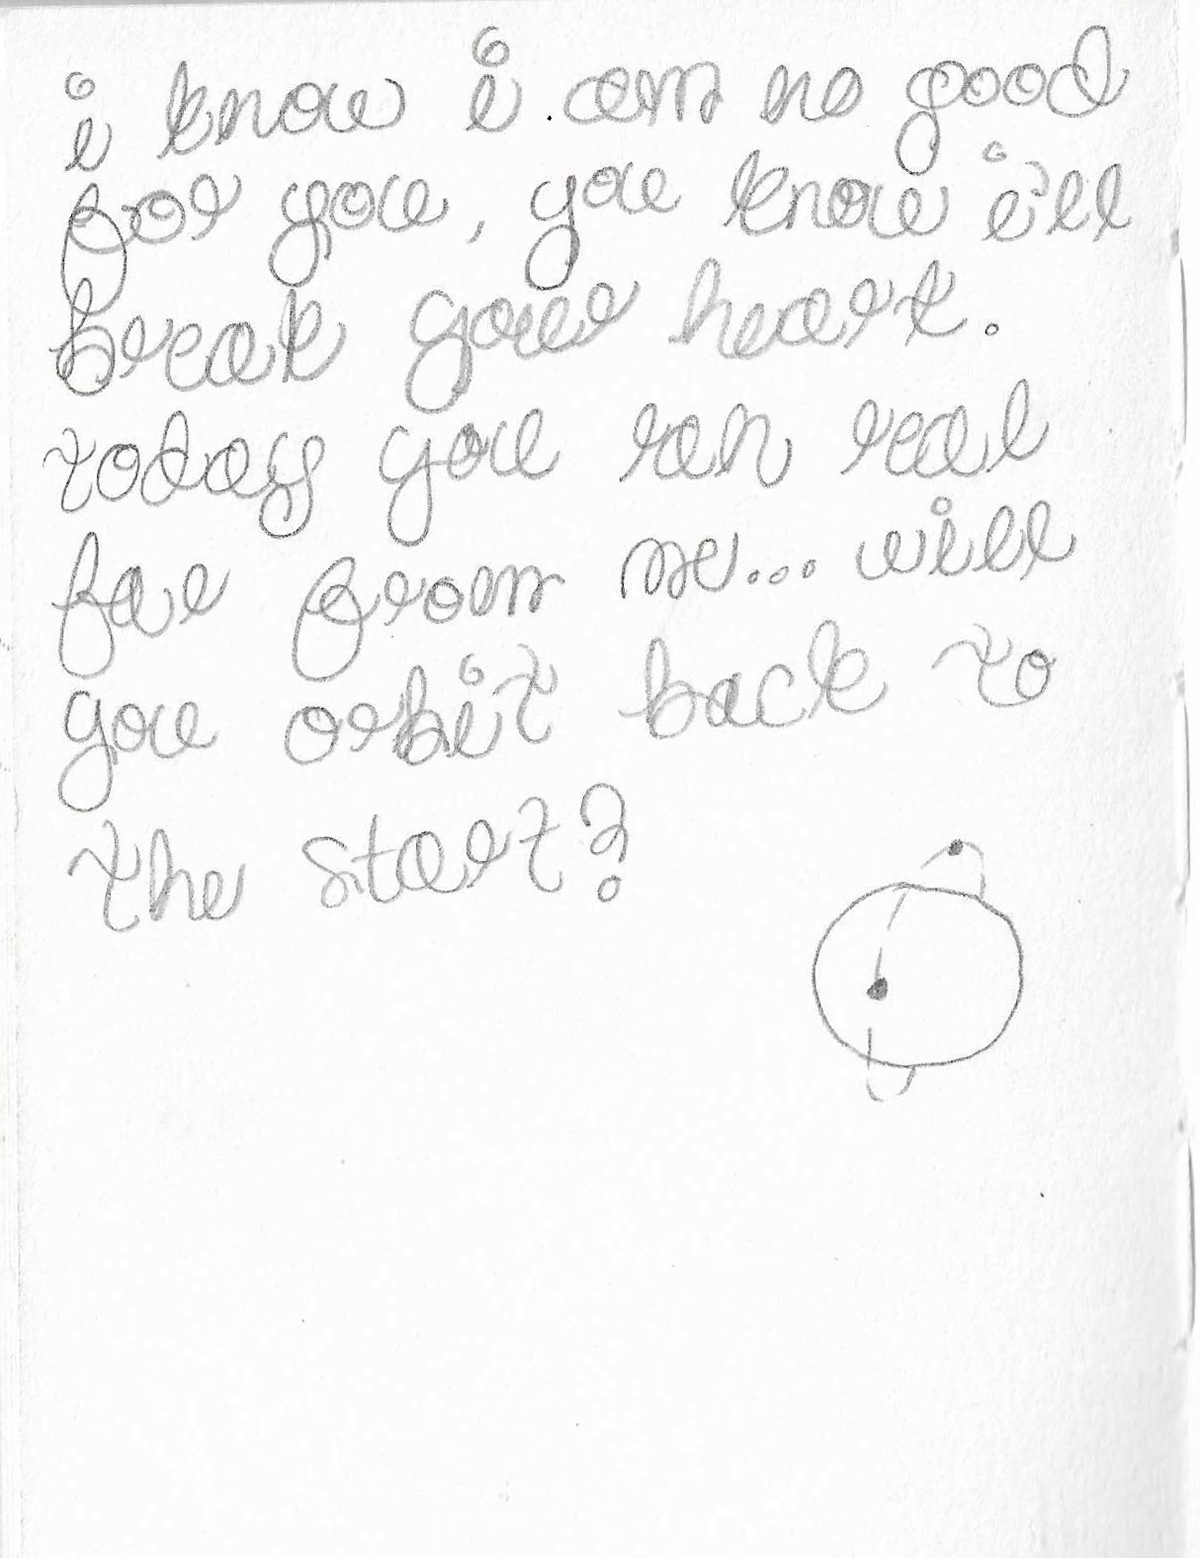 i know i am no good
for you, you know i'll
break your heart.
today you ran real
far from me... will
you orbit back to
the start?